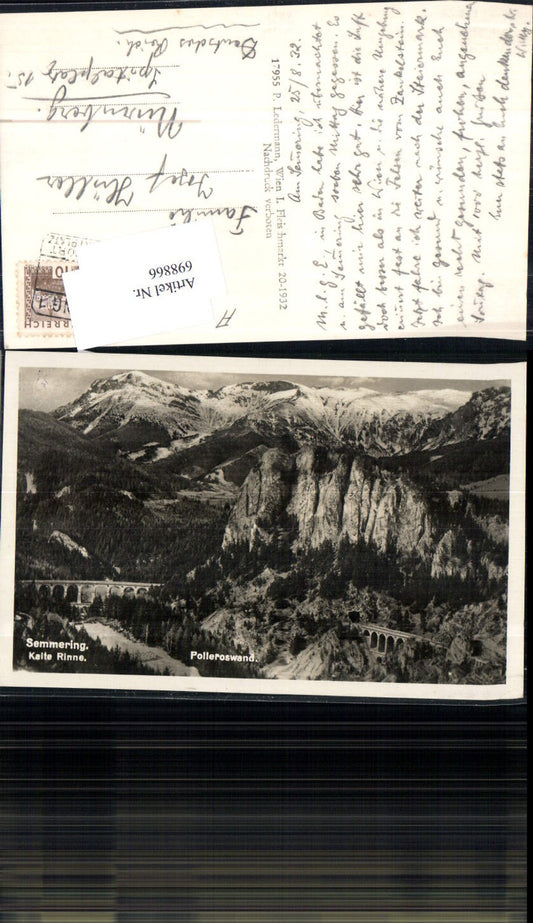 Am Semmering, 25/8. 32.
M. l. G. E, in Baden habe ich übernachtet
u. am Semmering soeben Mittag gegessen. Es
gefällt mir hier sehr gut. Hier ist die Luft
doch besser als in Wien u. die nähere Umgebung
erinnert fast an die Felsen vom
Jetzt fahre ich weiter nach der Steiermark.
Ich bin gesund u. wünsche auch Euch
einen recht gesunden, frohen, angenehmen
Sonntag. Mit 1000 herzl. Grüßen
Euer stets an Euch denkender
Willy.
17955 P. Ledermann, Wien I, Fleischmarkt 20-1932
Nachdruck verboten
Familie
Josef Hüller
Nürnberg.
Spitalplatz 15I
Deutsches Reich.
ÖSTERREICH
10
Artikel Nr.
698866
Semmering.
Kalte Rinne.
Polleroswand.